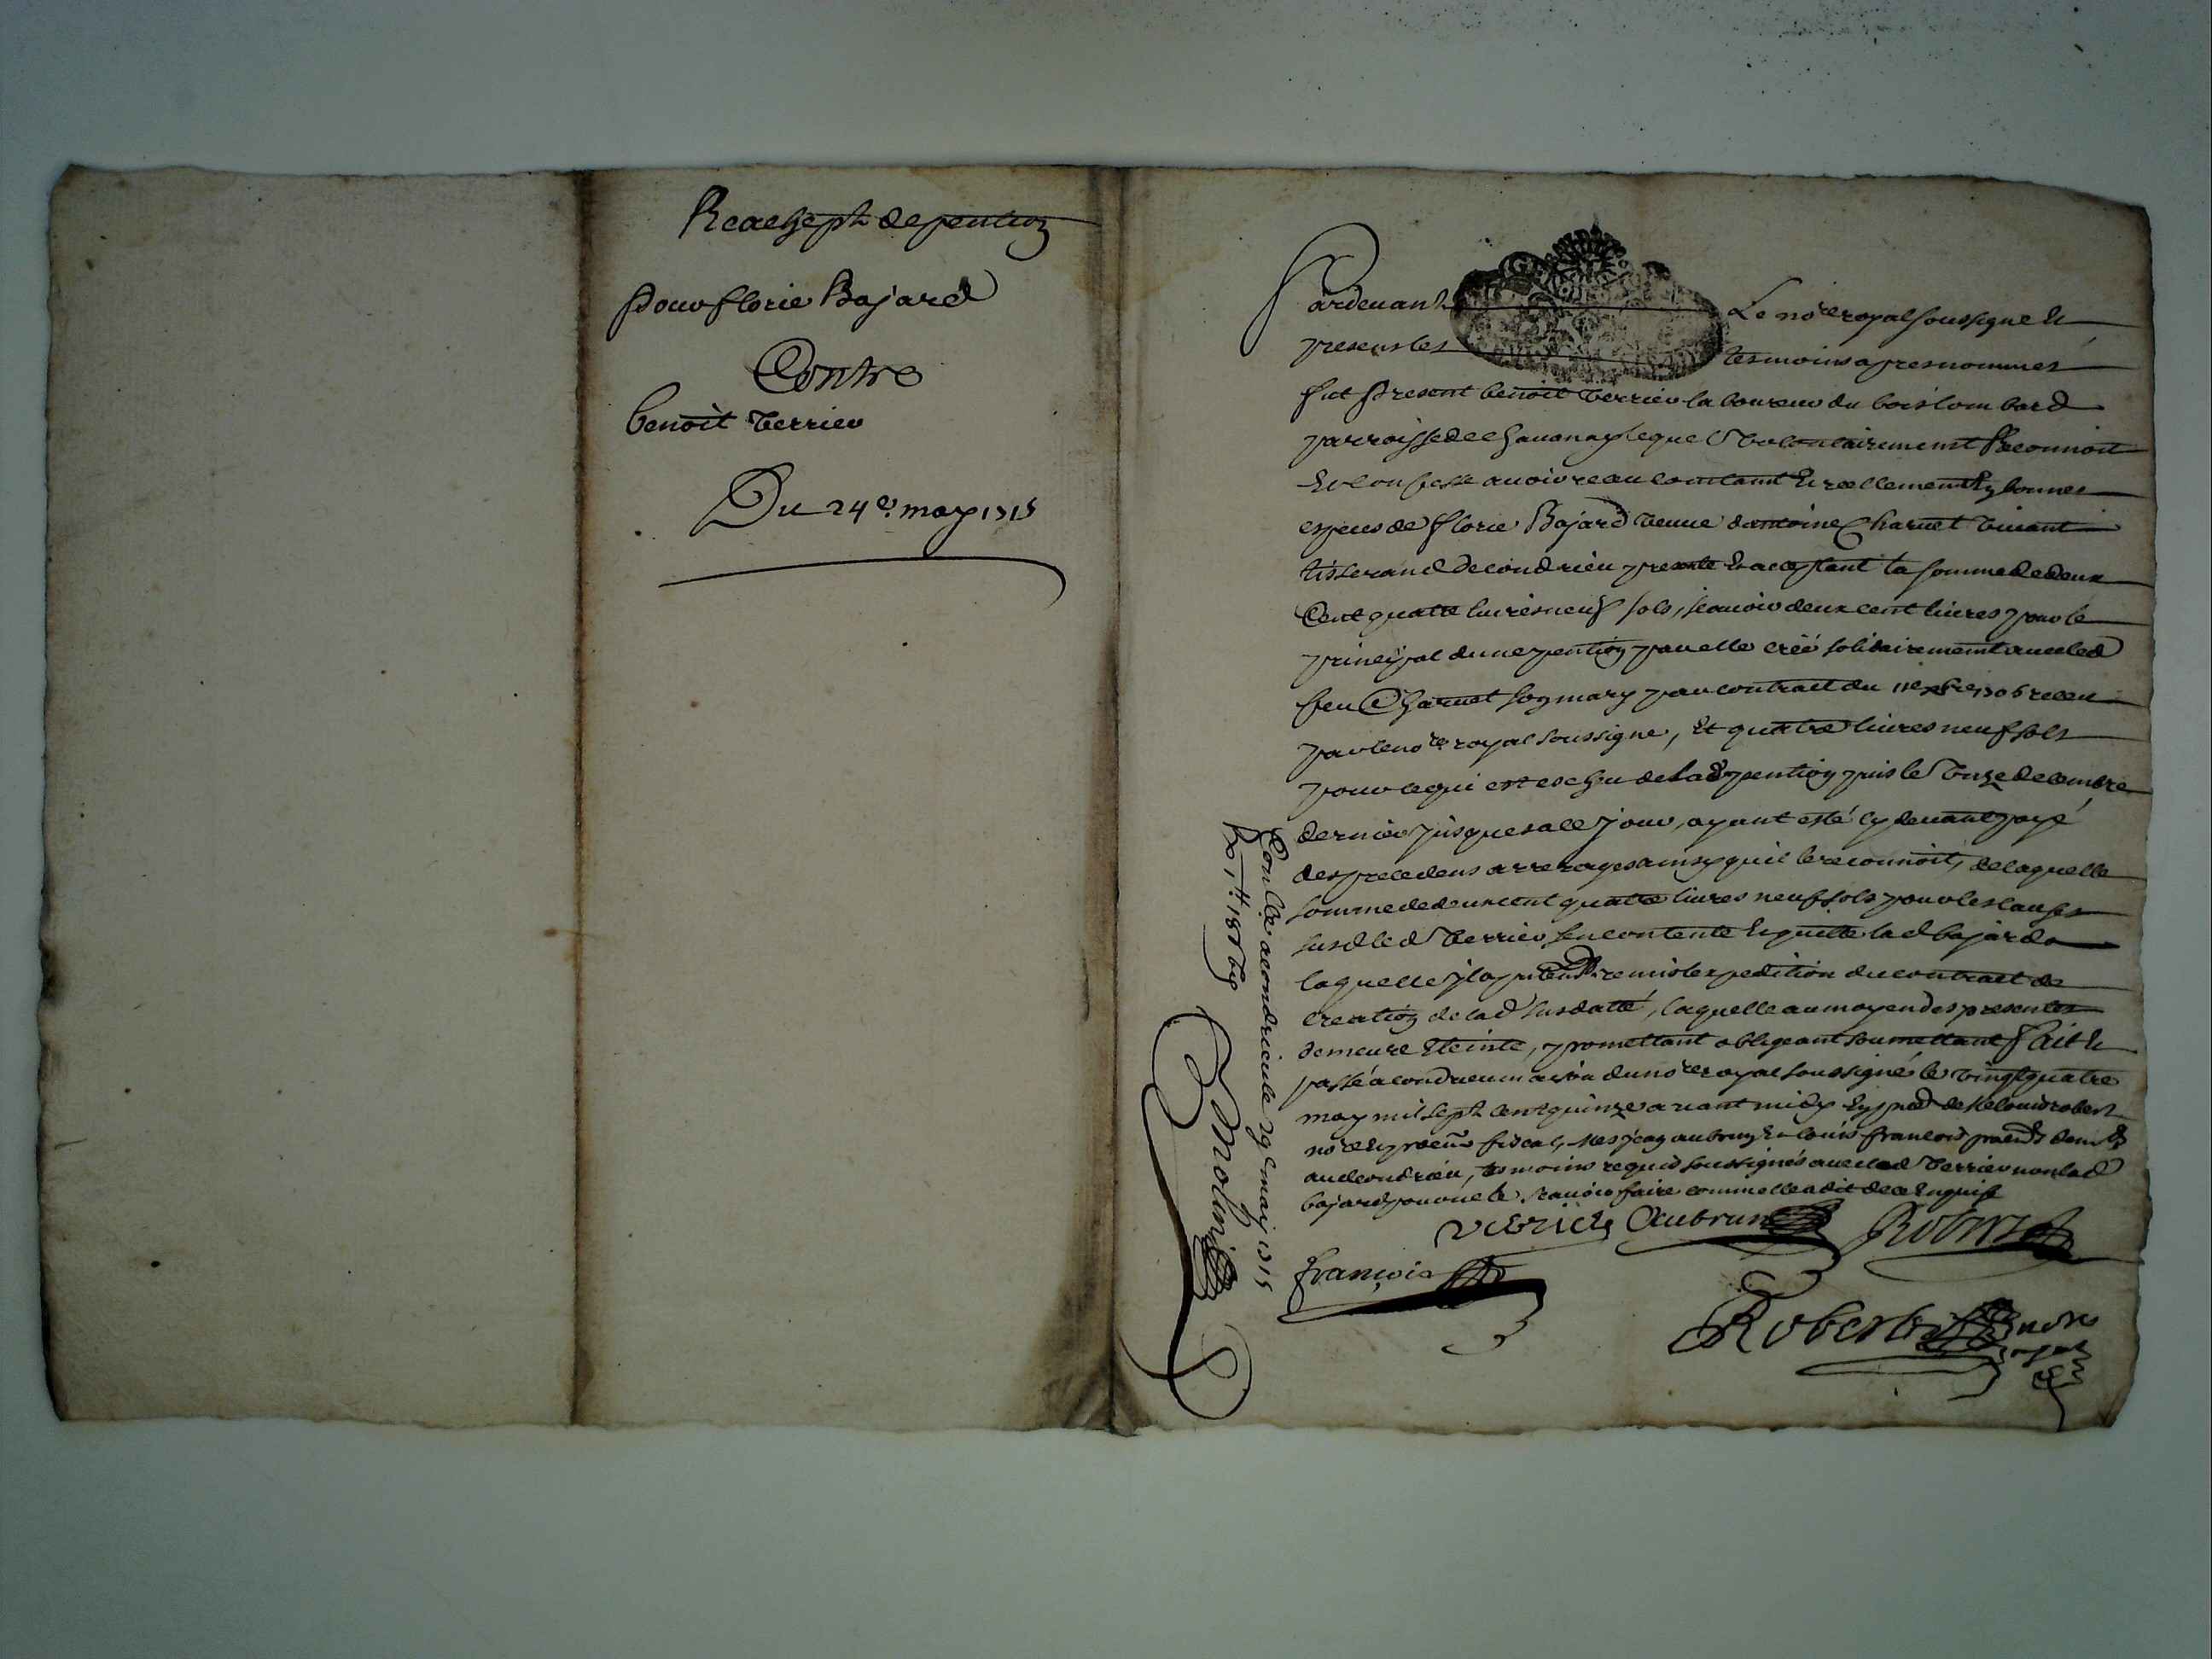 Reachept de pention
Pour florie Bajard
Contre
benoit Verrier
Du 24e may 1715
Pardevant Le nore royal soussigne Et
presens les tesmoins apres nommes
fut Present benoit Verrier laboureur du bois lombard
parroisse de Chavanay lequel volontairement Reconnoit
Et confesse avoir receu contant Et reellement En bonnes
especes de florie Bajard veuve dantoine Charvet vivant
tisserand de condrieu presente Et acceptant la somme de deux
Cent quatre livres neuf sols, scavoir deux cent livres pour le
principal dune pention par elle créé solidairement avec led
feu Charvet son mary par contract du 11e xbre 1706 receu
par le nore royal soussigne, Et quatre livres neuf sols
pour ce qui est escheu de lad pention puis le onze decembre
dernier jusques a ce jour, ayant esté cy devant payé
des precedens arrerages ainsy quil le reconnoit, de laquelle
somme de deux cent quatre livres neuf sols pour les causes
susd led Verrier sen contente Et quitte lad bajard a
laquelle il a presentemt remis lexpedition du contract de
creation de lad susdatté, laquelle au moyen des presentes
demeure Eteinte, promettant obligeant soumettant fait Et
passé a condrieu maison du nore royal soussigné le vingt quatre
may mil sept cent quinze avant midy En pnce de Me louis robert
nore Et procur fiscal, Mes jean aubrun Et louis francois praends demts
aud condrieu, tesmoins requis soussignés avec led Verrier non lad
bajard pour ne le scavoir faire comme elle a dit de ce Enquise
verrier Aubrun Robert
françois
Robert nore
royal
Conllé a condrieu le 29e may 1715
Molin